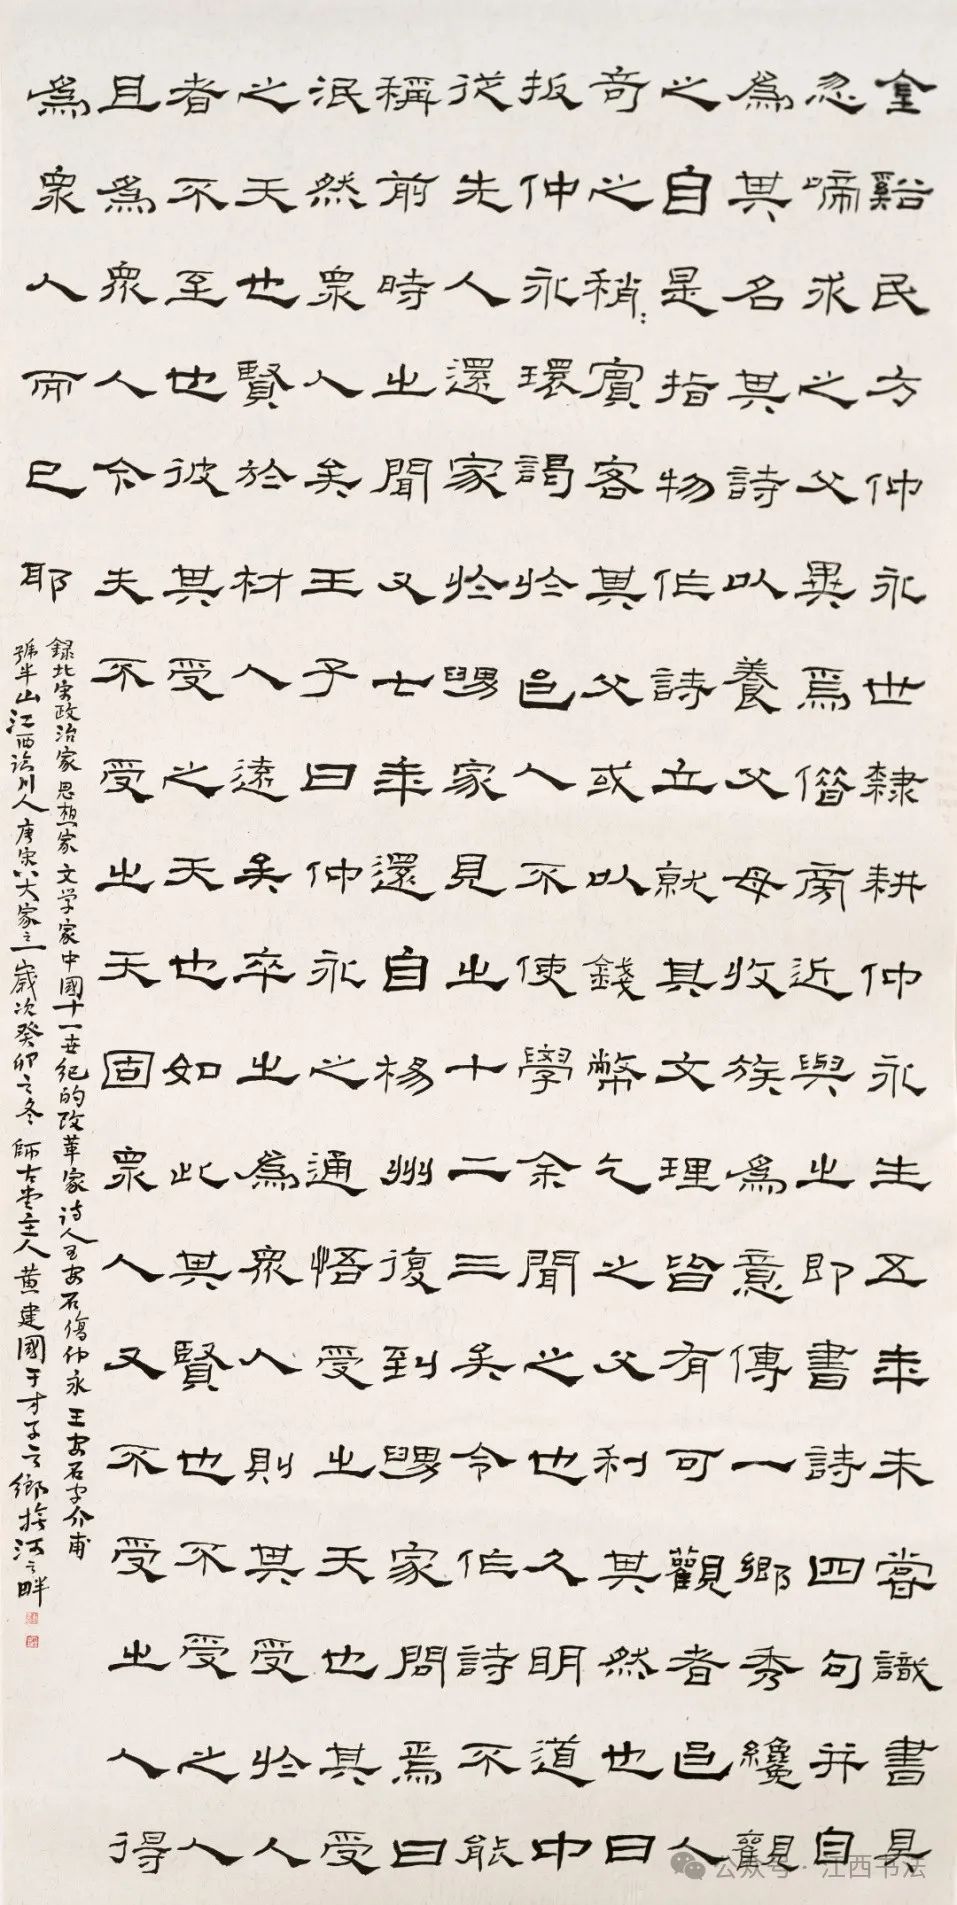 金谿民方仲永世隸耕仲永生五年未嘗識書具
忽啼求之父異焉借旁近與之即書詩四句并自
為其名其詩以養父母收族為意傳一鄉秀纔觀
之自是指物作詩立就其文理皆有可觀者邑人
奇之稍〻賓客其父或以錢幣乞之父利其然也曰
扳仲永環謁於邑人不使學余聞之也久明道中
從先人還家於舅家見之十二三矣令作詩不能
稱前時之聞又七年還自楊州復到舅家問焉曰
泯然衆人矣王子曰仲永之通悟受之天也其受
之天也賢於材人遠矣卒之為衆人則其受於人
者不至也彼其受之天也如此其賢也不受之人
且為衆人今夫不受之天固衆人又不受之人得
為衆人而已耶
録北宋政治家思想家文学家中國十一世纪的改革家诗人王安石傷仲永王安石字介甫
號半山江西临川人唐宋八大家之一歲次癸卯之冬師古堂主人黄建國于才子之鄉撫河之畔
公众号·江西书法